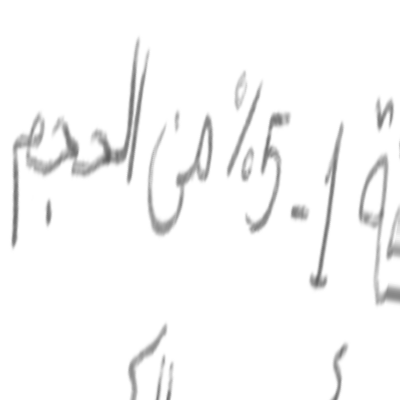 1-5% من الحجم